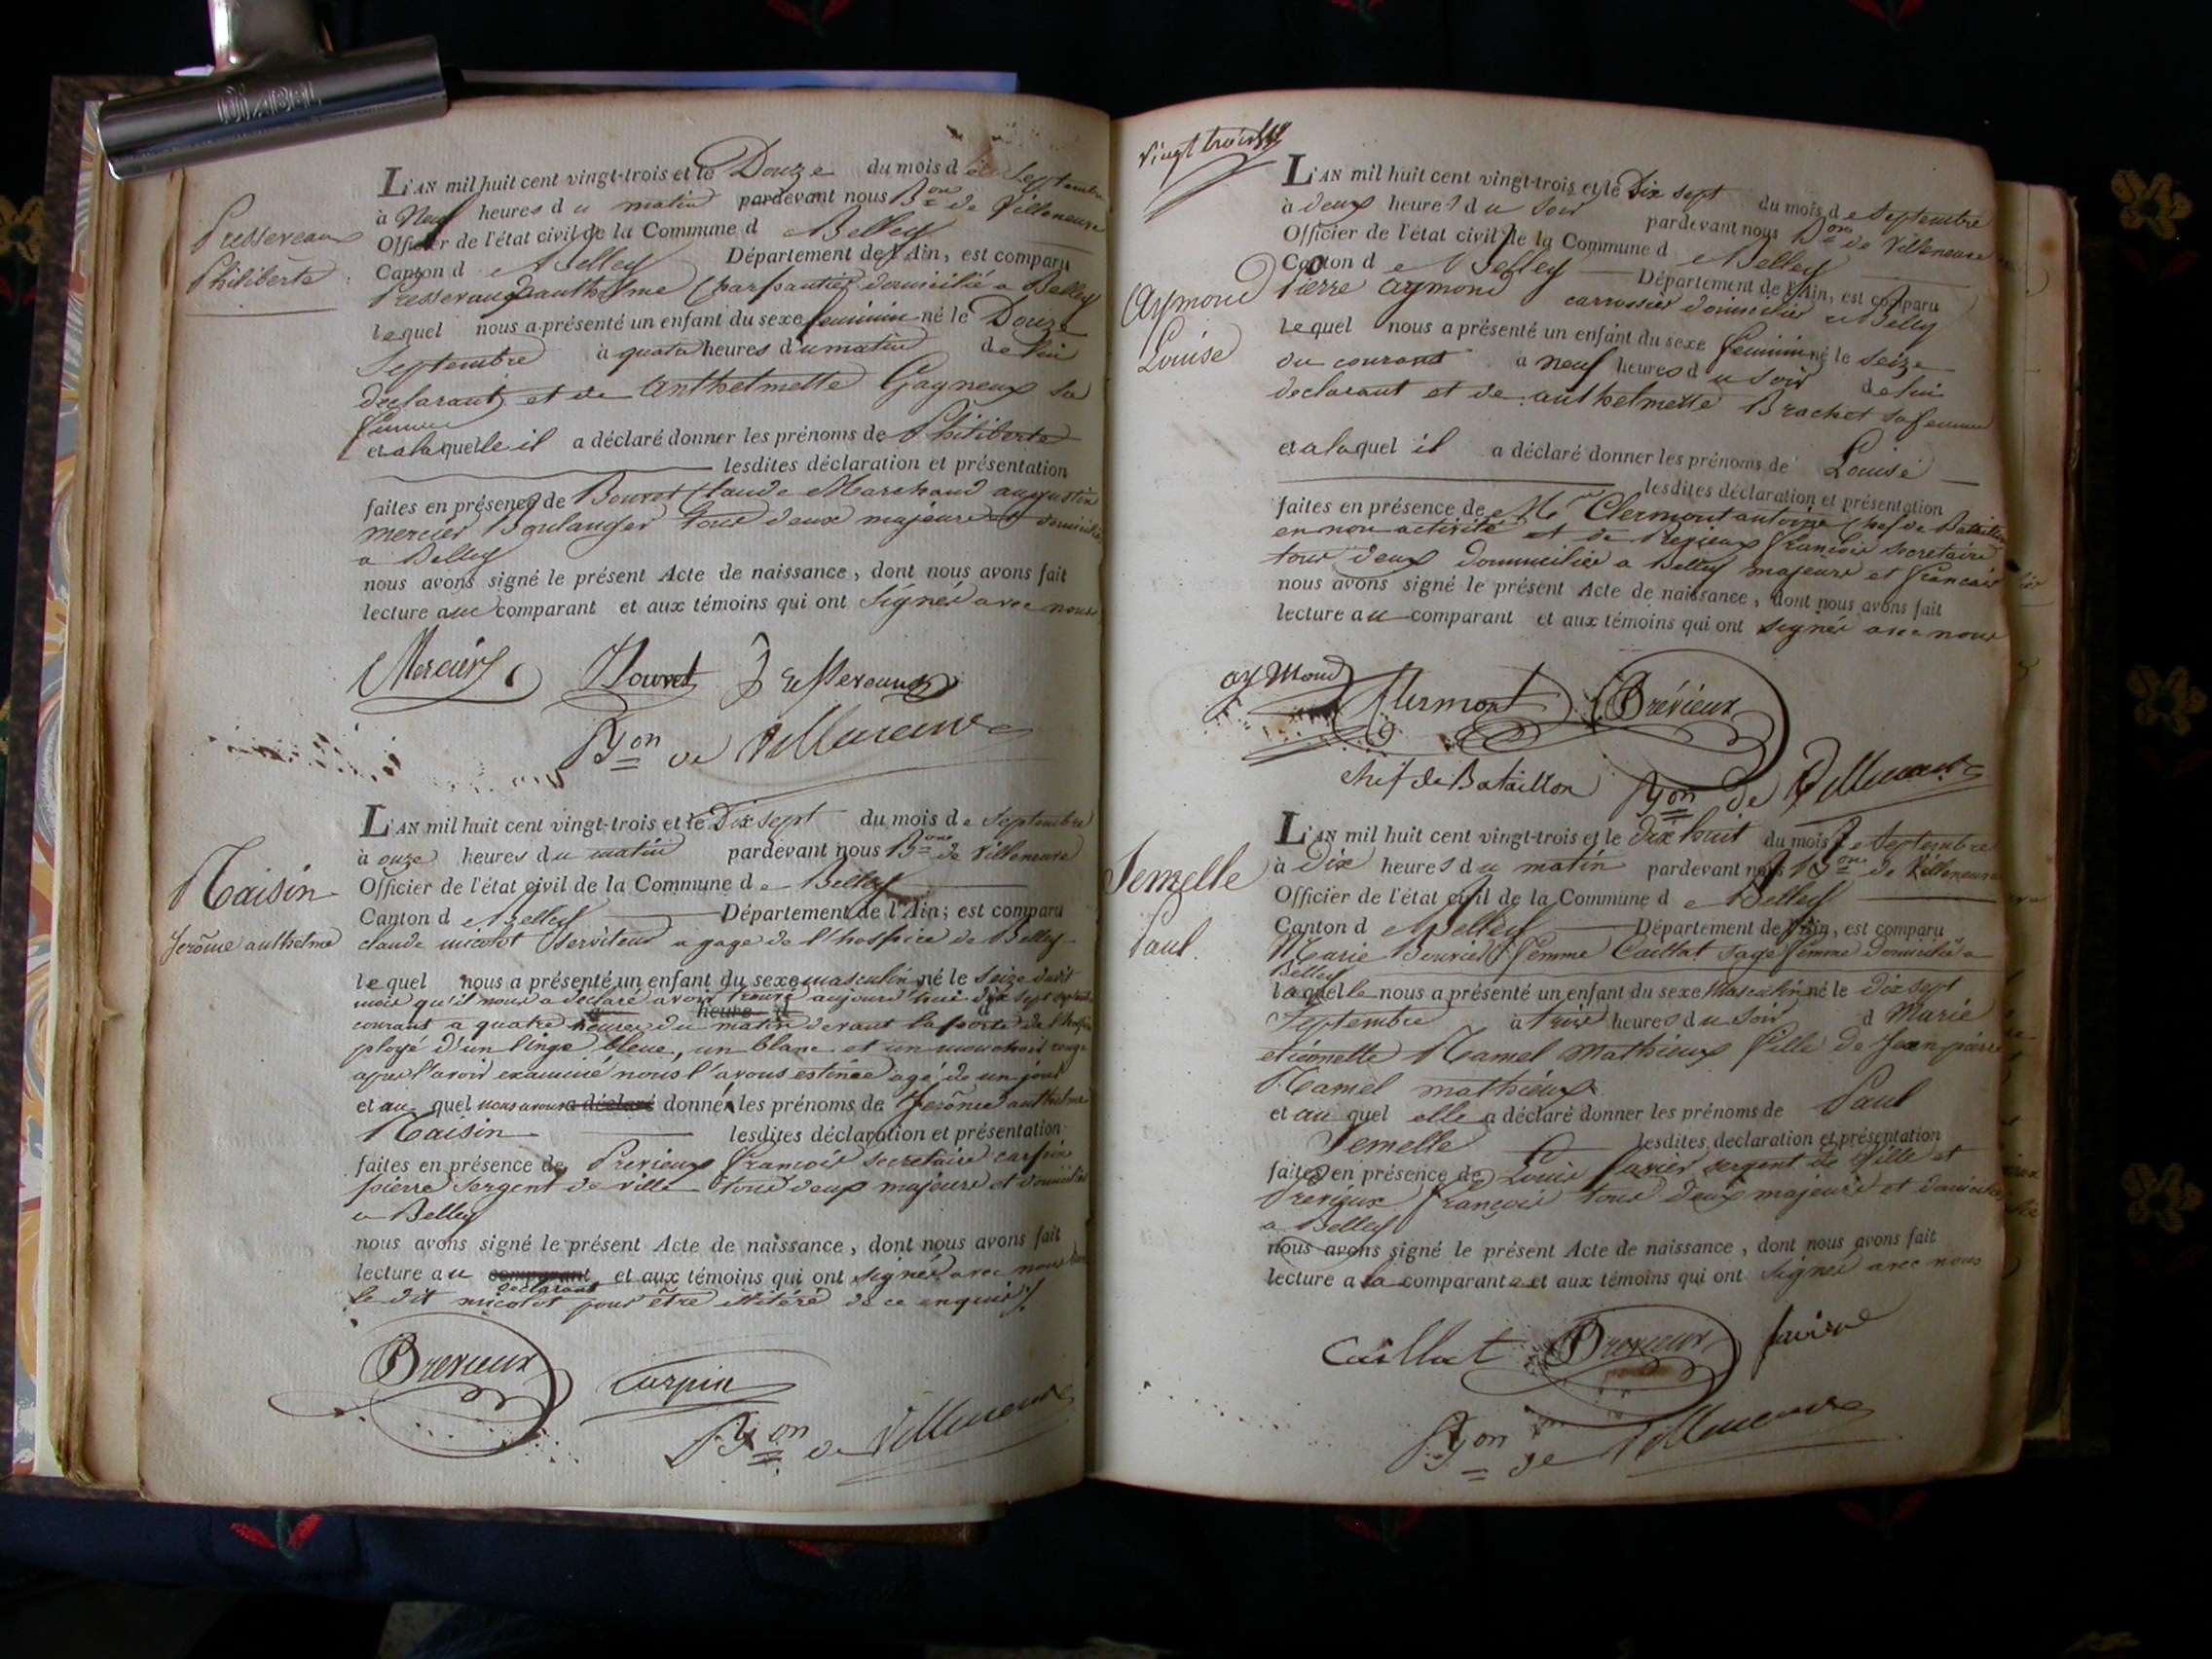 DIABEL
Pressevaux
Philiberte
L'AN mil huit cent vingt-trois et le Douze du mois de Septembre
à Neuf heures du matin pardevant nous Bon de Villeneuve
Officier de l'état civil de la Commune de Belley
Canton de Belley Département de l'Ain, est comparu
anthelme charpantier domicilié a Belley
lequel nous a présenté un enfant du sexe feminin né le Douze
Septembre à quatre heures du matin de lui
déclarant et de Anthelmette Gagneux sa
femme
et a laquelle il a déclaré donner les prénoms de Philiberte
lesdites déclaration et présentation
faites en présence de Bouvet Claude Marchand augustin
mercier Boulanger tous deux majeurs et domiciliés
a Belley
nous avons signé le présent Acte de naissance, dont nous avons fait
lecture au comparant et aux témoins qui ont signés avec nous
Mercier Bouvet
Bon de Villeneuve
Raisin
Jerôme anthelme
L'AN mil huit cent vingt-trois et le Dix sept du mois de Septembre
à onze heures du matin pardevant nous Bon de Villeneuve
Officier de l'état civil de la Commune de Belley
Canton de Belley Département de l'Ain; est comparu
claude nicolot serviteur a gage de l'hospice de Belley
lequel nous a présenté un enfant du sexe masculin né le seize dudit
mois qu'il nous a déclaré avoir trouvé aujourd'hui dix sept septembre
courant a quatre heures du matin devant la porte de l'hospice
ployé d'un linge bleue, un blanc et un mouchoir rouge
apres l'avoir examiné nous l'avons estimée agé de un jour
et au quel nous avons a déclaré donné les prénoms de Jerôme anthelme
Raisin lesdites déclaration et présentation
faites en présence de Previeux françois secretaire carpin
pierre sergent de ville tous deux majeurs et domiciliés
a Belley
nous avons signé le présent Acte de naissance, dont nous avons fait
lecture au comparant déclarant et aux témoins qui ont signés avec nous
le dit nicolot pour être illitéré de ce enquis
Previeux Carpin
Bon de Villeneuve
vingt trois
Aymond
Louise
L'AN mil huit cent vingt-trois et le Dix sept du mois de Septembre
à deux heures du soir pardevant nous Bon de Villeneuve
Officier de l'état civil de la Commune de Belley
Canton de Belley Département de l'Ain, est comparu
Pierre Aymond carrossier domicilier a Belley
lequel nous a présenté un enfant du sexe feminin né le seize
du courant à neuf heures du soir de lui
declarant et de anthelmette Brachet sa femme
et a laquel il a déclaré donner les prénoms de Louise
lesdites déclaration et présentation
faites en présence de Mr Clermont antoine chef de Bataillon
en non activité et de Previeux françois secretaire
tous deux dommicilies a Belley majeurs et français
nous avons signé le présent Acte de naissance, dont nous avons fait
lecture au comparant et aux témoins qui ont signés avec nous
aymond Clermont Prévieux
chef de Bataillon Bon de Villeneuve
Semelle
Paul.
L'AN mil huit cent vingt-trois et le dix huit du mois de Septembre
à Dix heures du matin pardevant nous Bon de Villeneuve
Officier de l'état civil de la Commune de Belley
Canton de Belley Département de l'Ain, est comparu
Marie femme Caillat sage femme domiciliée a
Belley
laquelle nous a présenté un enfant du sexe masculin né le dix sept
Septembre à trois heures du soir d Marie
etiennette Ramel mathieux fille de Jean pierre
Ramel mathieux
et au quel elle a déclaré donner les prénoms de Paul
Semelle lesdites déclaration et présentation
faites en présence de Louis sergent de ville et
Previeux françois tous deux majeurs et domiciliés
a Belley
nous avons signé le présent Acte de naissance, dont nous avons fait
lecture a la comparante et aux témoins qui ont signés avec nous
Caillat Previeux
Bon de Villeneuve